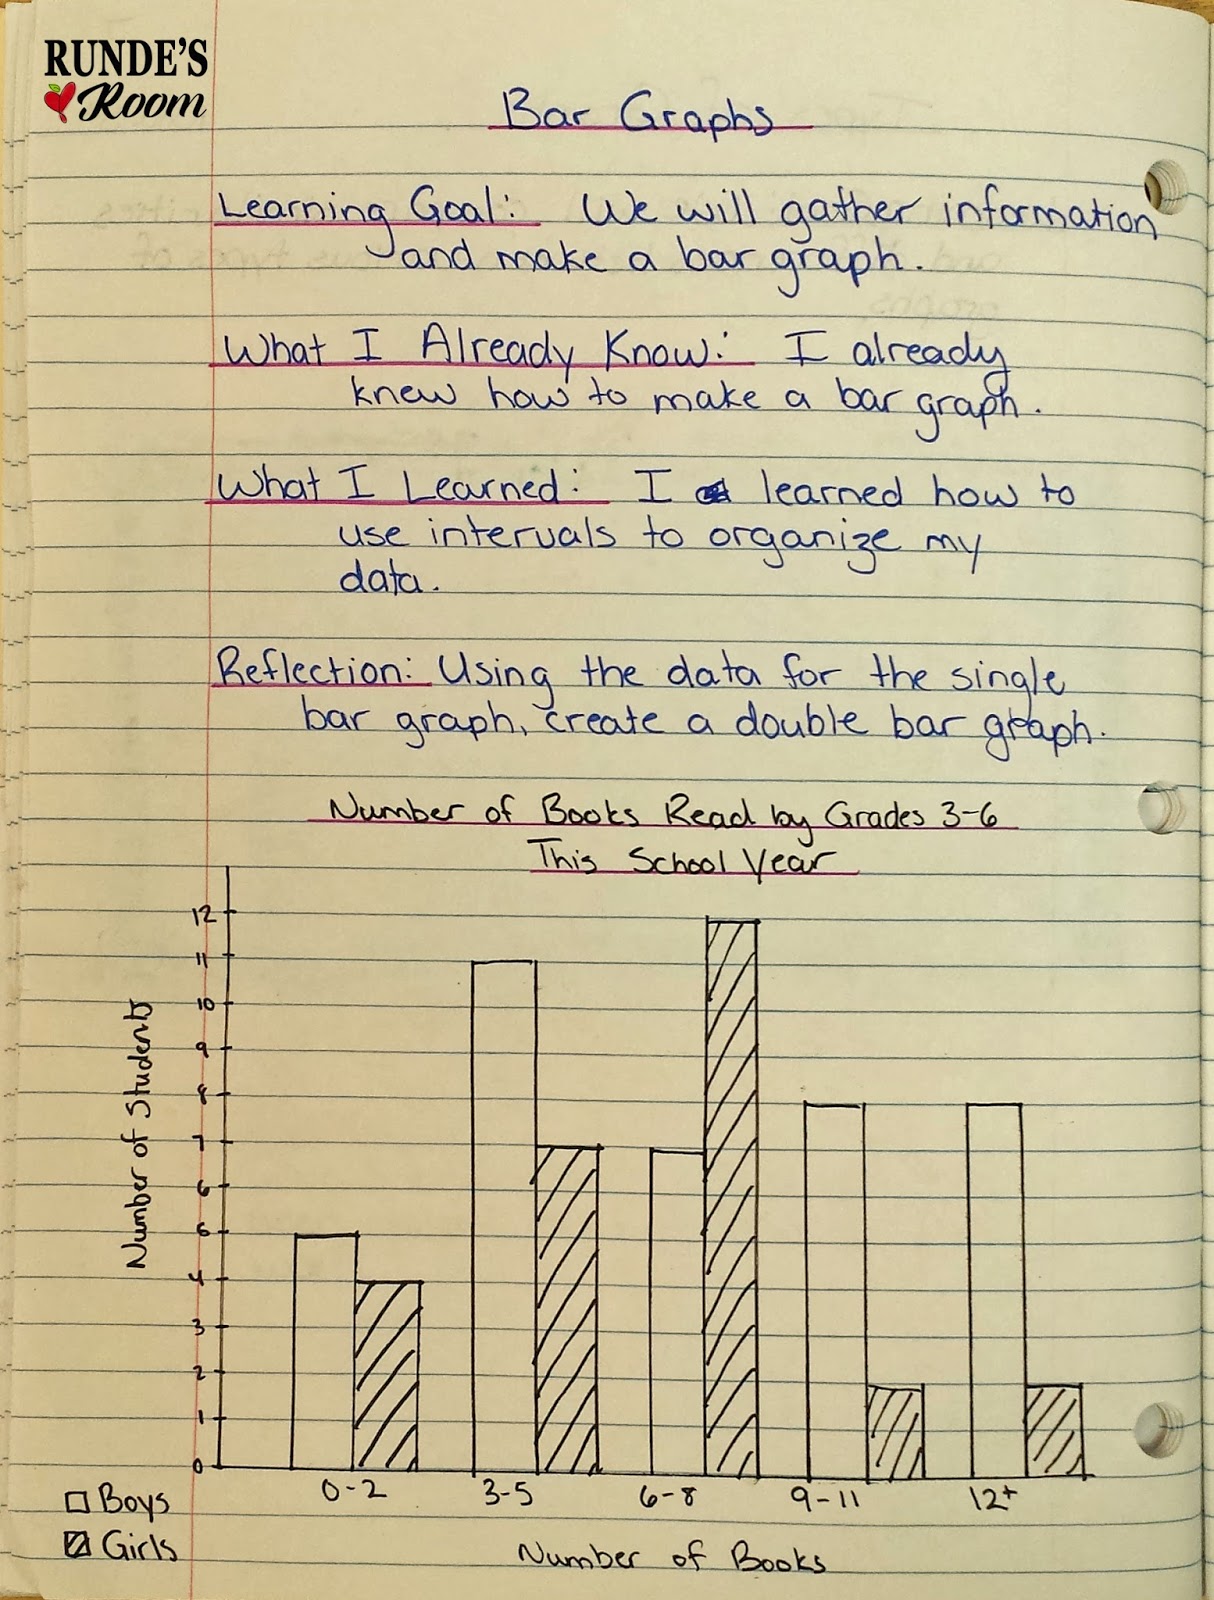 RUNDE'S
Room
Bar Graphs
Learning Goal: We will gather information
and make a bar graph.
What I Already Know: I already
knew how to make a bar graph.
What I Learned: I learned how to
use intervals to organize my
data.
Reflection: Using the data for the single
bar graph, create a double bar graph.
Number of Books Read by Grades 3-6
This School Year
12
11
10
9
8
7
6
5
4
3
2
1
0
Number of Students
0-2 3-5 6-8 9-11 12+
Boys
Girls
Number of Books